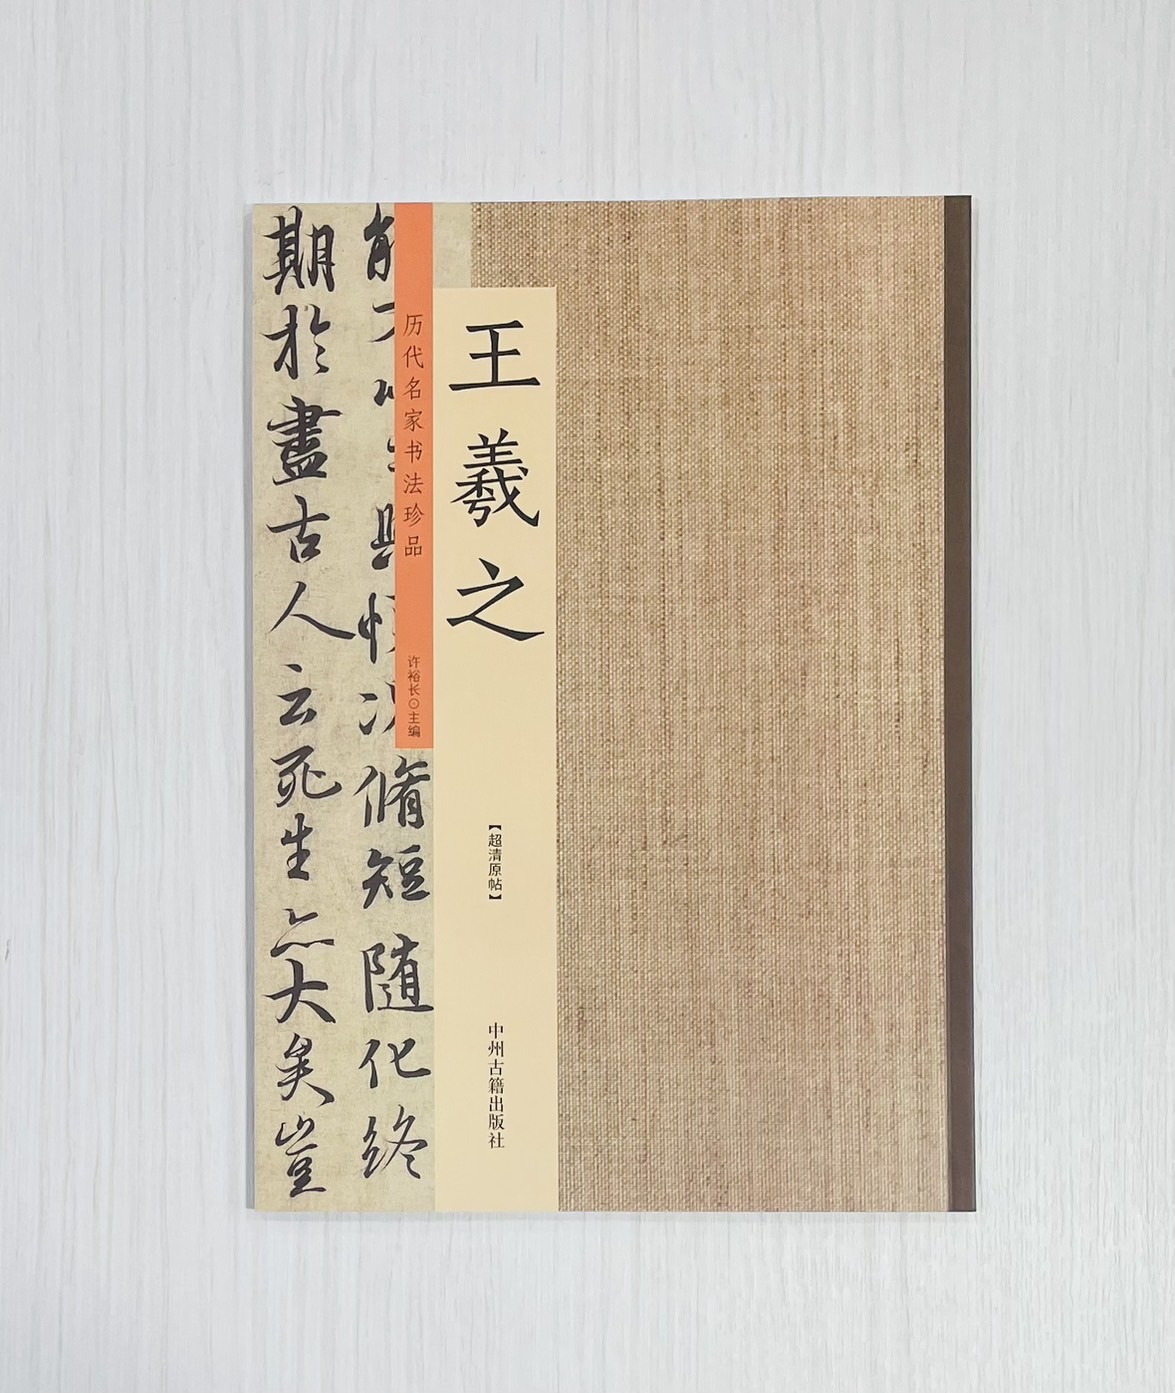 王羲之
历代名家书法珍品
许裕长⊙主编
【超清原帖】
中州古籍出版社
脩短随化终
期於盡古人云死生亦大矣豈